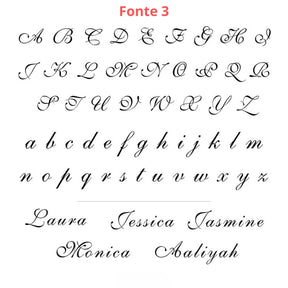 Fonte 3
A B C D E F G H I
J K L M N O P Q R
S T U V W X Y Z
a b c d e f g h i j k l m
n o p q r s t u v w x y z
Laura Jessica Jasmine
Monica Aaliyah